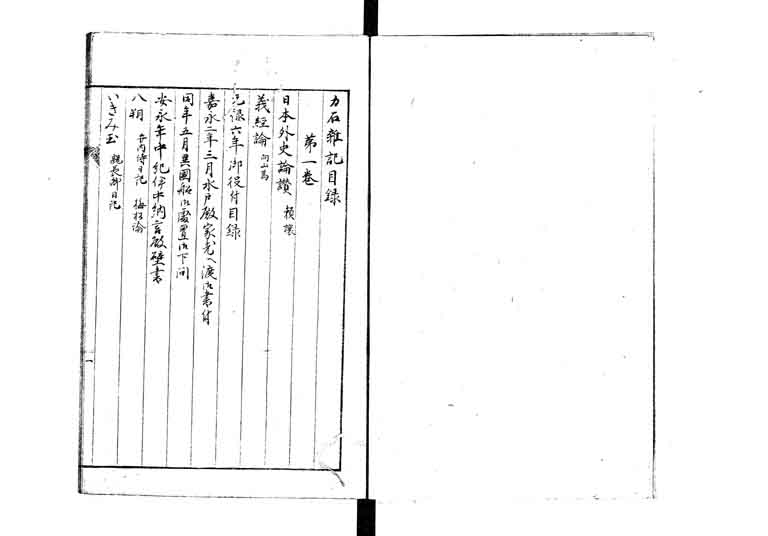 力石雜記目録
第一巻
日本外史論讃 頼襄
義經論 向山篤
元禄六年御役付目録
嘉永二年三月水戸殿家老へ渡御書付
同年五月異國船御處置御下問
安永年中紀伊中納言殿壁書
八朔 年内侍日記 梅松論
いきみ玉 親長卿日記
一